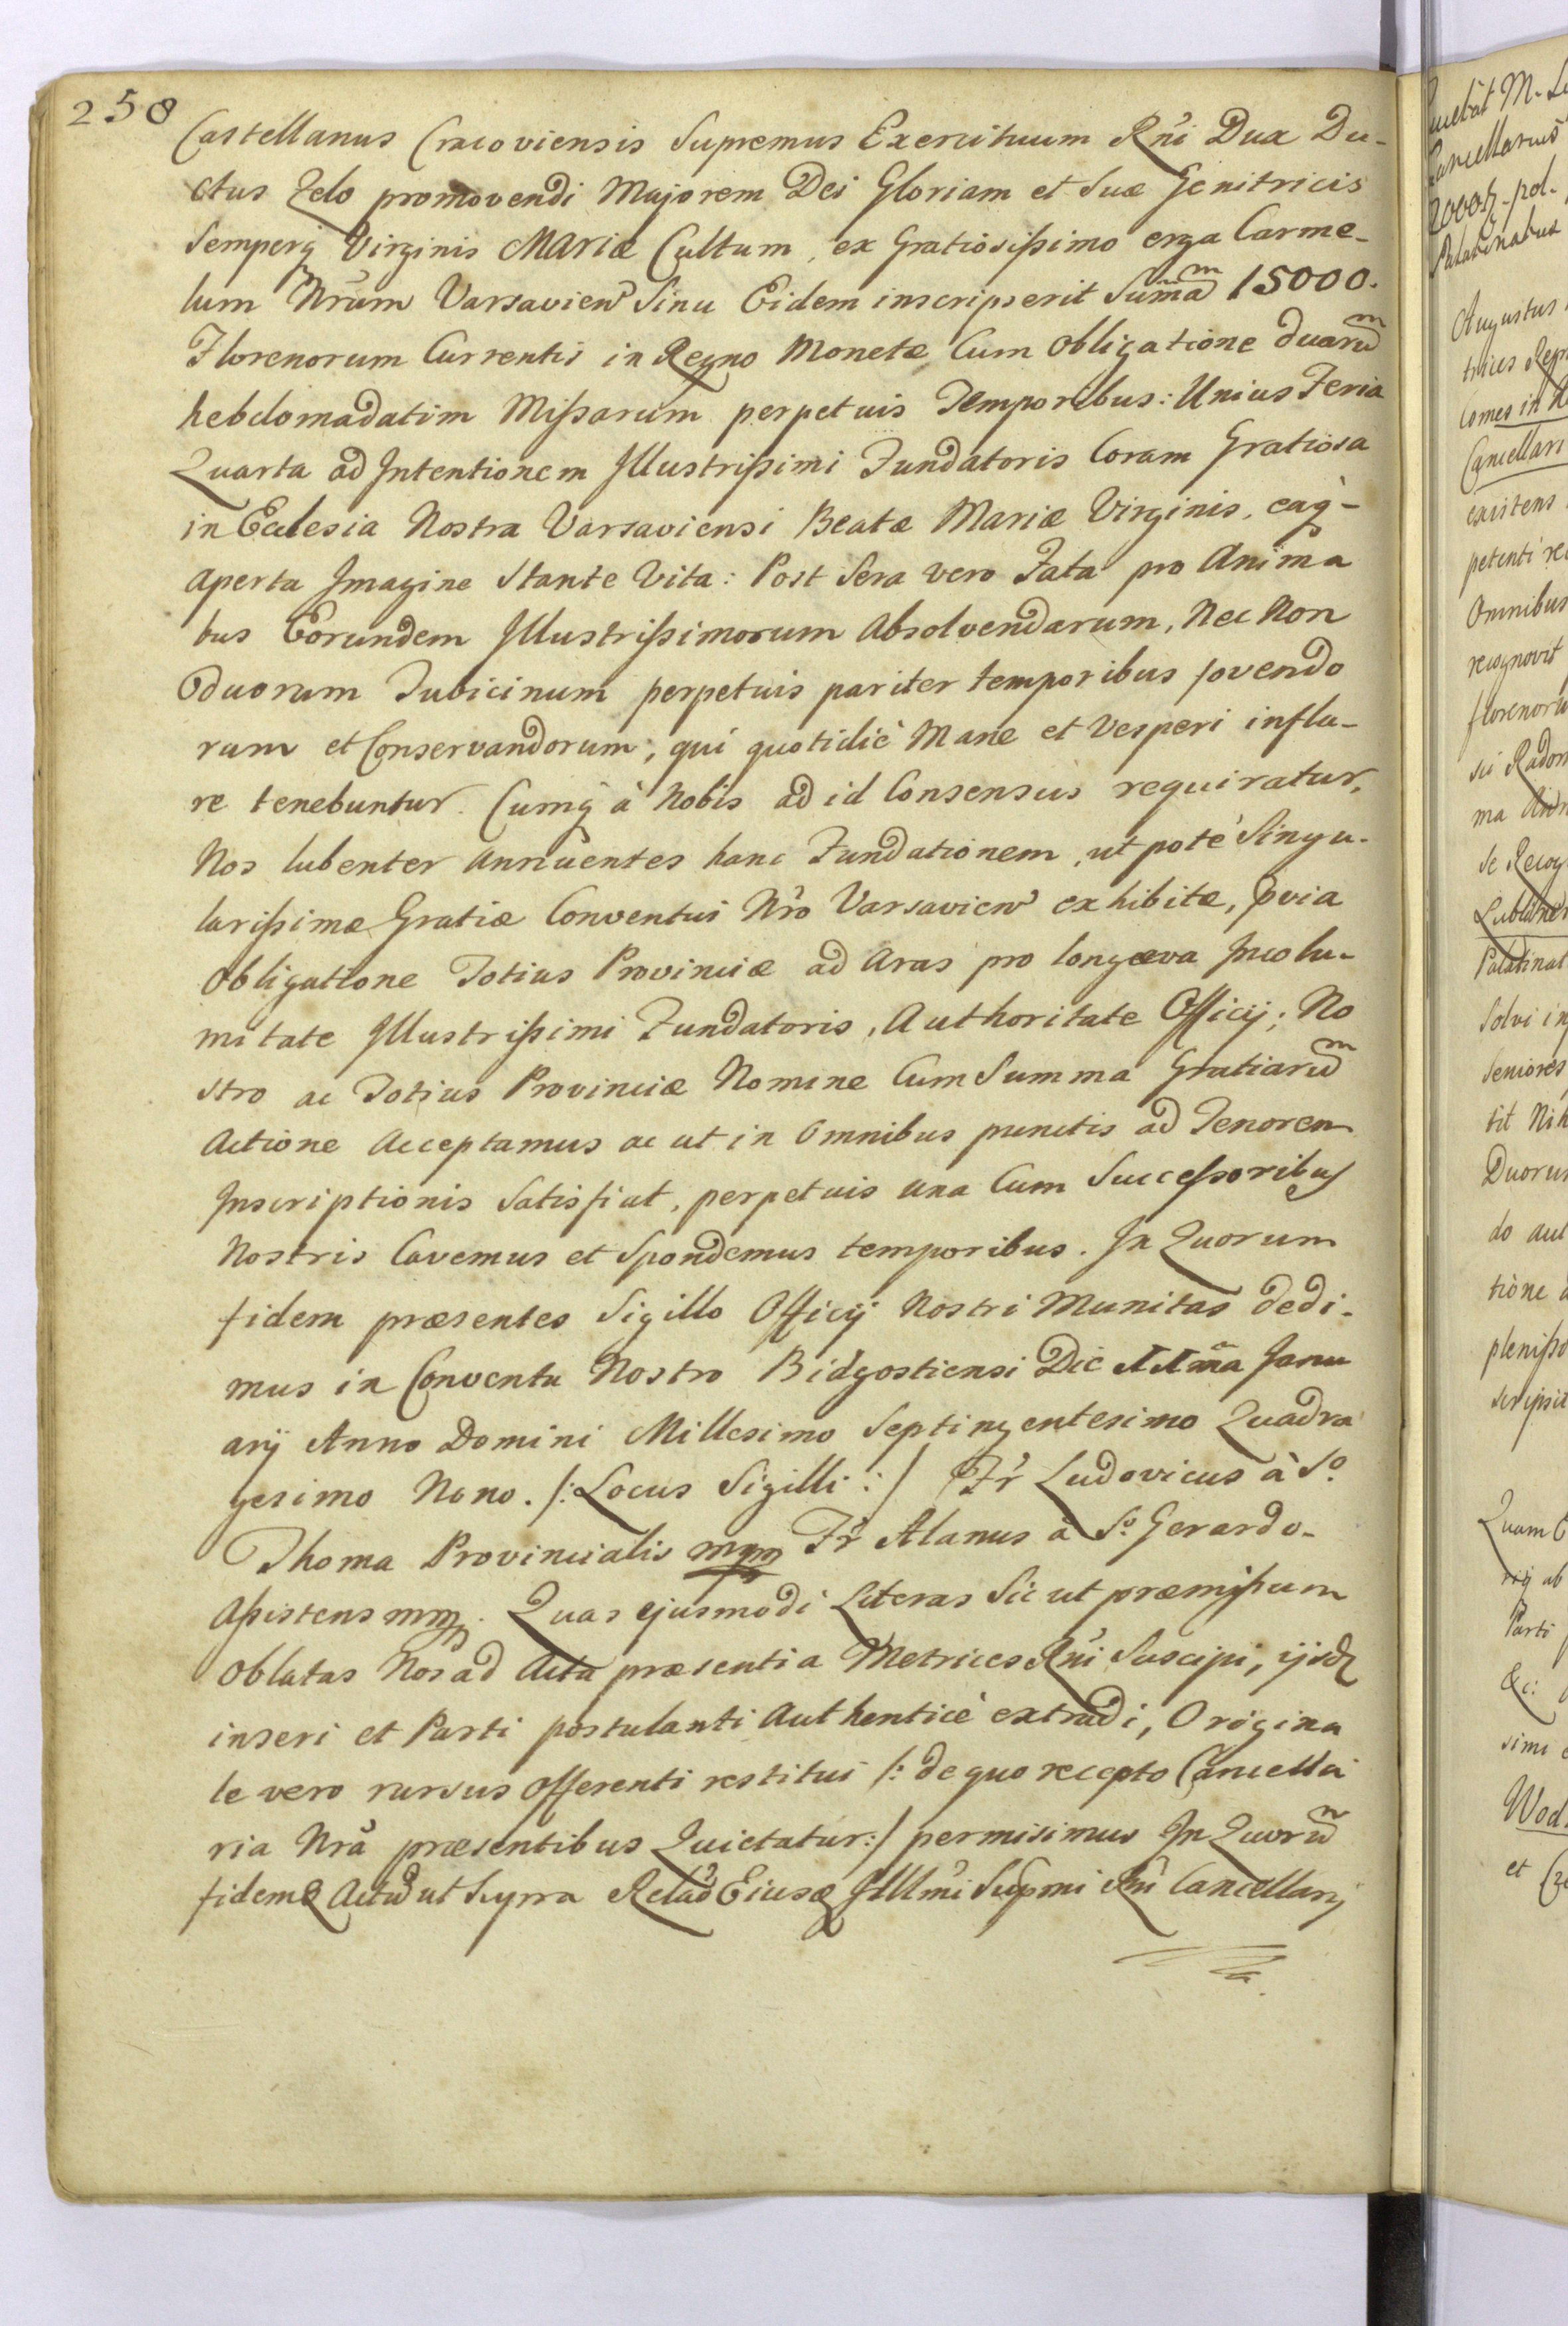 258
Castellanus Cracoviensis Supremus Exercituum Rñi Dux Du-
ctus Zelo promovendi Majorem Dei Gloriam et Suæ Genitricis
Semperq Virginis MARIÆ Cultum, ex Gratiosißimo erga Carme-
lum Nrũm Varsavien Sinu Eidem inscripserit Sum̃am 15000.
Florenorum Currentis in Regno Monetæ Cum Obligatione duarum
hebdomadatim Mißarum perpetuis Temporibus: Unius Feria
Quarta ad Intentionem Illustrißimi Fundatoris Coram Gratiosa
in Ecclesia Nostra Varsaviensi Beatæ Mariæ Virginis, eaq-
aperta Imagine Stante Vita: Post Sera vero Fata pro Anima
bus Eorundem Illustrißimorum Absolvendarum, Nec Non
duorum Tubicinum perpetuis pariter temporibus fovendo
rum et Conservandorum, qui quotidiè Mane et Vesperi infla-
re tenebuntur. Cumq à Nobis ad id Consensus requiratur,
Nos lubenter Annuentes hanc Fundationem, ut poté Singu-
larißimæ Gratiæ Conventui Nr̃o Varsavien exhibitæ, pvia
Obligatione Totius Provinciæ ad Aras pro longæva Incolu-
mitate Illustrißimi Fundatoris, Authoritate Officij; No
stro ac Totius Provinciæ Nomine Cum Summa Gratiarum
Actione Acceptamus ac ut in Omnibus punctis ad Tenorem
Inscriptionis Satisfiat, perpetuis una Cum Succeßoribus
Nostris Cavemus et Spondemus temporibus. In Quorum
fidem præsentes Sigillo Officij Nostri Munitas dedi-
mus in Conventu Nostro Bidgostiensi Die 11 m̃a Janu
arij Anno Domini Millesimo Septingentesimo Quadra
gesimo Nono. /: Locus Sigilli :/ Fr̃ Ludovicus à So.
Thoma Provincialis mpp Fr̃ Alanus à So. Gerardo-
Aßistens mpp. Quas ejusmodi Literas Sic ut præmißum
Oblatas Nos ad Acta præsentia Metrices Rñi Suscipi, ijsdq
inseri et Parti postulanti Authenticè extradi, Origina
le vero rursus Offerenti restitui /: de quo recepto Cancella
ria Nrã præsentibus Quietatur:/ permisimus In Quorum
fidem Actum ut Supra Relão Eiusdq Illlm̃i Supmi Rñi Cancellarij